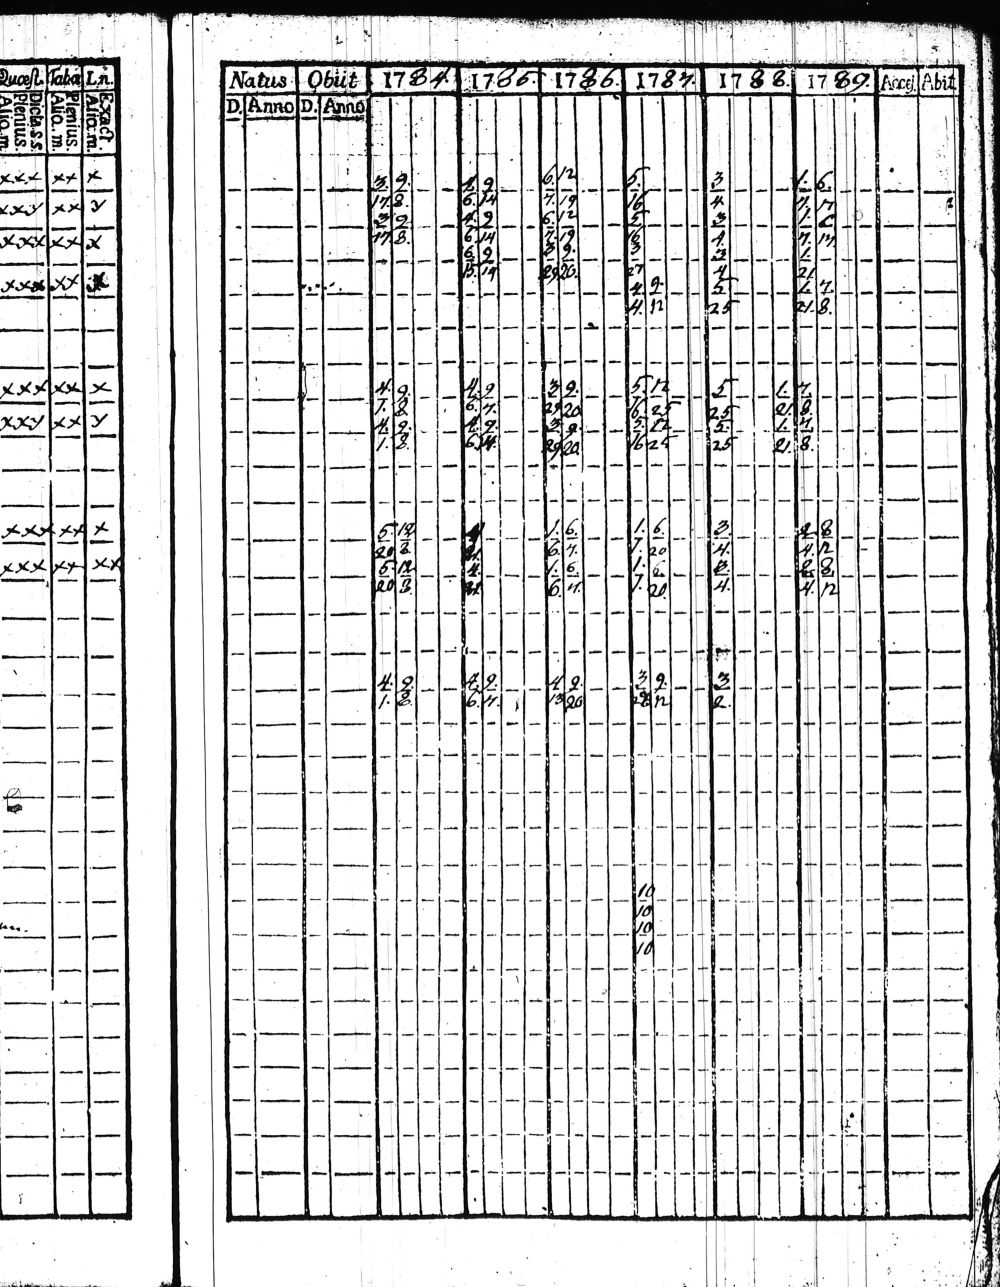 Quæst. Taba I.n.
Dicta.s.s. Plenius. Alio.m.
Plenius. Alio.m
Exact. Alio.m.
Natus Obiit 1784. 1785. 1786. 1787. 1788. 1789. Acces. Abiit
D. Anno D. Anno
xxx xx x
3. 9. 4. 9 6. 12 5. 3 1. 6.
xxy xx y
17. 8. 6. 14 7. 19 16 4. 7. 17
3 9 4. 9 6. 12 5 3 1. 6
xxx xx x
17. 8. 6. 14 7. 19 16 4. 7. 17
6 9 3 9. 3 3 1.
15. 19 29 20 27 4 21
xxx xx
4 9. 5 1. 7.
4. 12 25 21. 8.
xxx xx x
4. 9. 4. 9 3 9. 5 12 5 1. 7.
1. 8. 6. 7. 29 20 16 25 25 21. 8.
xxy xx y
4. 9. 4. 9. 3 9. 5. 12 5. 1. 7.
1. 8. 6. 14 29 20 16 25 25 21. 8.
xxx xx x
5 12 4 1. 6. 1. 6. 3. 2 8
20 8. 21. 6. 7. 1. 20 4. 4. 12
xxx xx xx
5. 12 4. 1. 6. 1. 6 3. 2 8.
20 8. 21 6. 7. 1. 20 4. 4. 12
4. 9 4. 9. 4 9. 3 9. 3
1. 8. 6. 7. 13 20 28 12 2.
10
10
10
10